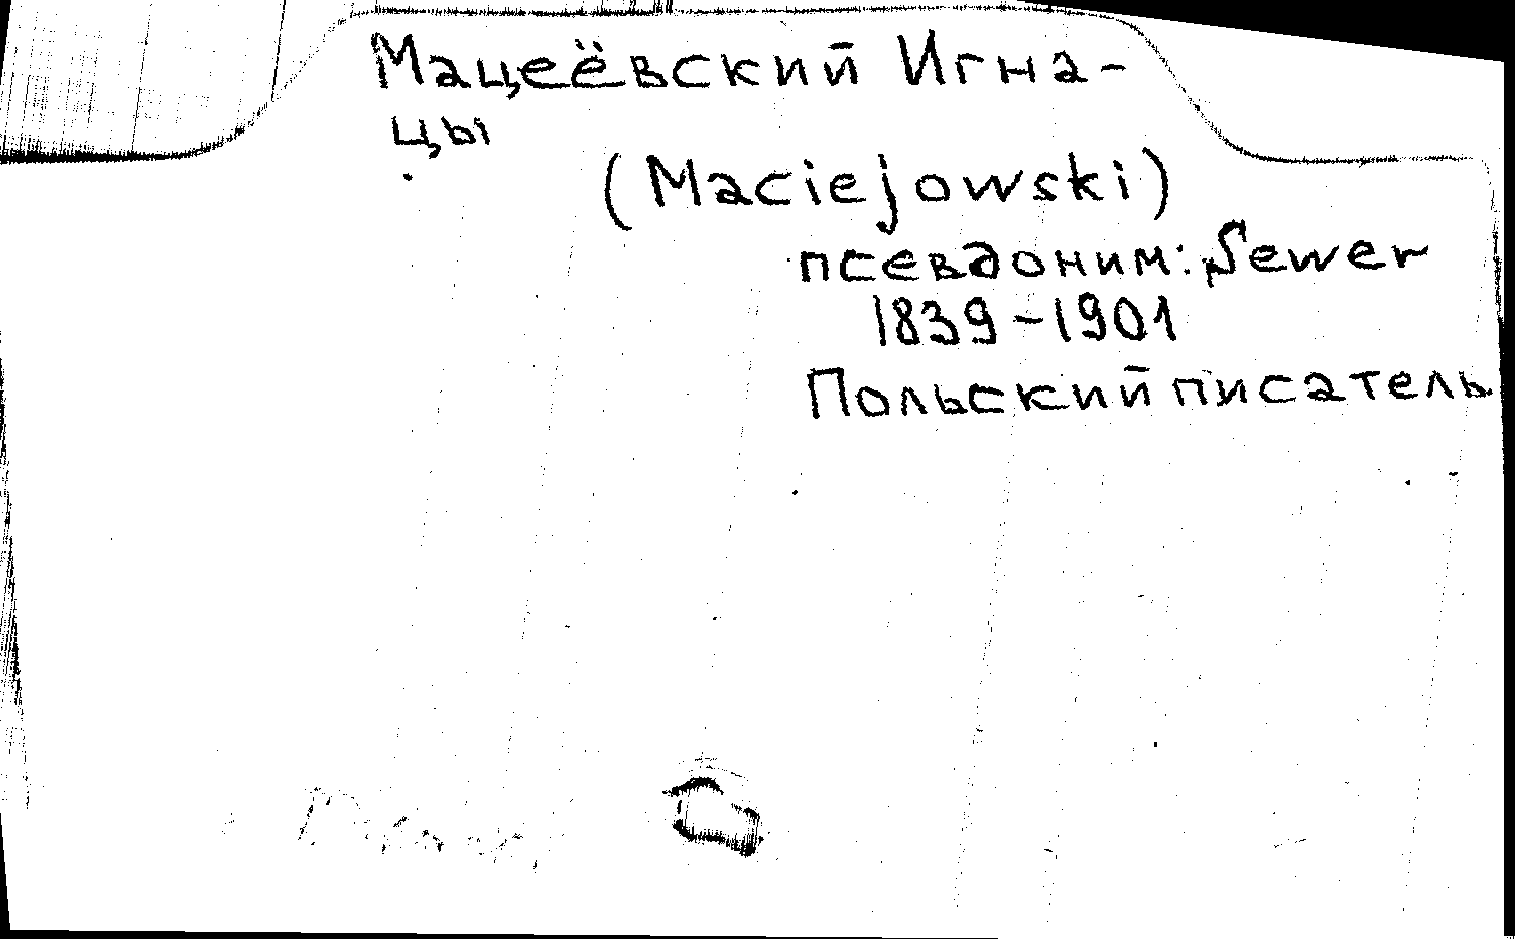 Мацеёвский Игна-
цы
(Maciejowski)
псевдоним: Sewer
1839-1901
Польский писатель